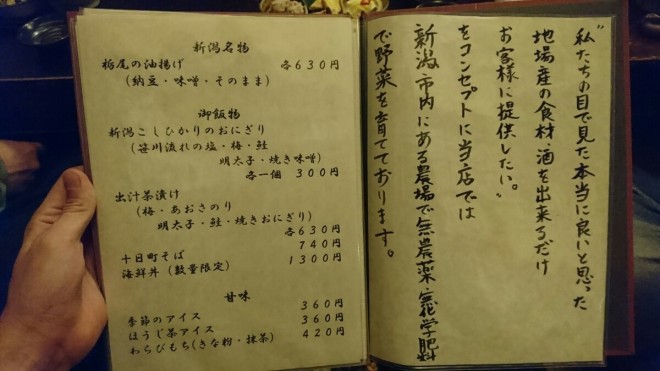 新潟名物
栃尾の油揚げ 各630円
(納豆・味噌・そのまま)
御飯物
新潟こしひかりのおにぎり
(笹川流れの塩・梅・鮭
明太子・焼き味噌)
各一個 300円
出汁茶漬け
(梅・あおさのり
明太子・鮭・焼きおにぎり)
各630円
十日町そば 740円
海鮮丼(数量限定) 1300円
甘味
季節のアイス 360円
ほうじ茶アイス 360円
わらびもち(きな粉・抹茶) 420円
"私たちの目で見た本当に良いと思った
地場産の食材・酒を出来るだけ
お客様に提供したい。"
をコンセプトに当店では
新潟市内にある農場で無農薬・無化学肥料
で野菜を育てております。